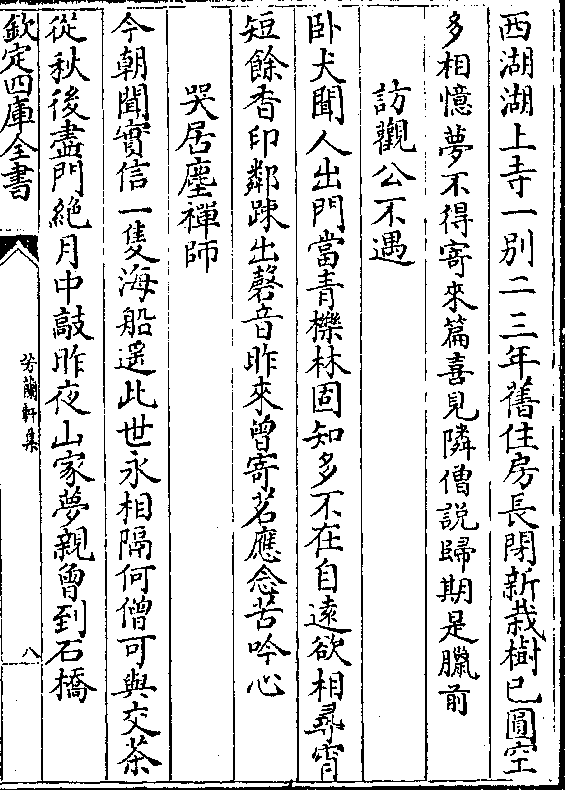 西湖湖上寺一別二三年舊住房長閉新栽樹已圓空
多相憶夢不得寄來篇喜見隣僧說歸期是臘前
訪觀公不遇
卧犬聞人出門當青櫟林固知多不在自遠欲相尋宵
短餘香印鄰踈出磬音昨來曾寄茗應念苦吟心
哭居塵禪師
今朝聞實信一隻海船遥此世永相隔何僧可與交茶
從秋後盡門絶月中敲昨夜山家夢親曾到石橋
欽定四庫全書
芳蘭軒集
八